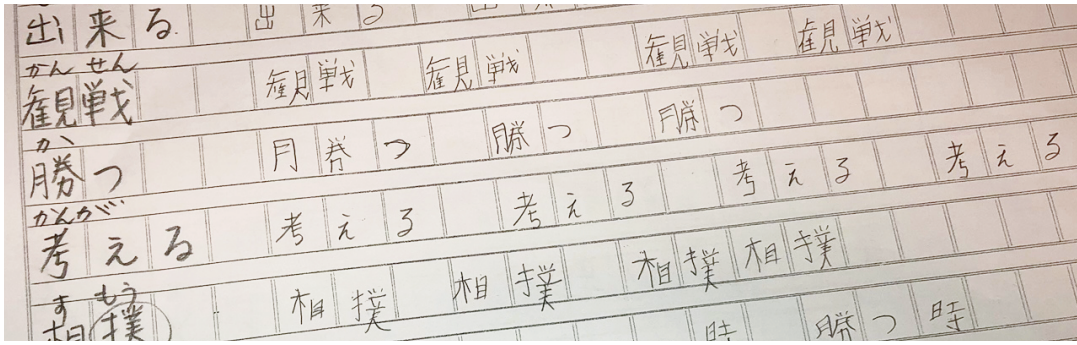 出来る 出来る 出
かんせん
観戦 観戦 観戦 観戦 観戦
か
勝つ 月券つ 勝つ 勝つ
かんがえ
考える 考える 考える 考える 考える
すもう
相撲 相撲 相撲 相撲 相撲
時 勝つ 時